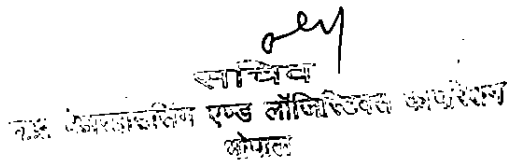 सचिव
म.प्र. वेअरहाउसिंग एण्ड लॉजिस्टिक्स कार्पोरेशन
भोपाल